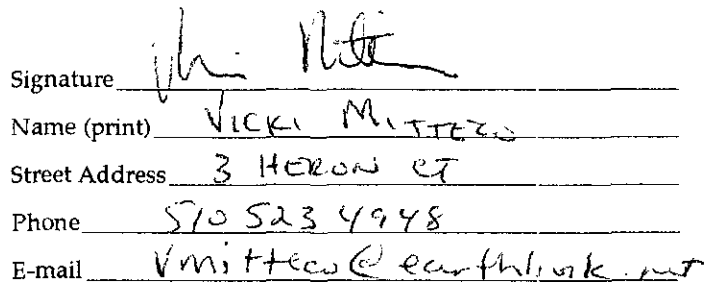 Signature
Name (print) VICKI MITTECO
Street Address 3 HERON CT
Phone 510 523 4948
E-mail Vmitteco@earthlink.net